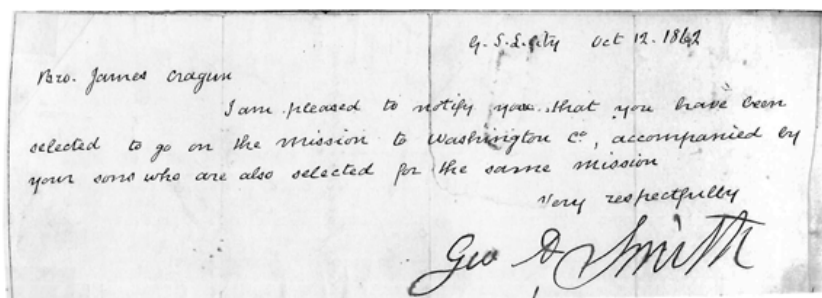 G. S. L. City Oct 12. 1862
Bro. James Cragun
I am pleased to notify you that you have been
selected to go on the Mission to Washington Co, accompanied by
your sons who are also selected for the same Mission
Very respectfully
Geo A Smith